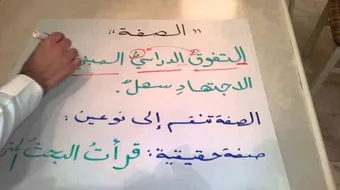 "الصفة"
التفوق الدراسي
الاجتهاد سهلٌ.
الصفة تنقسم إلى نوعين:
صفة حقيقية: قرأتُ البحثَ